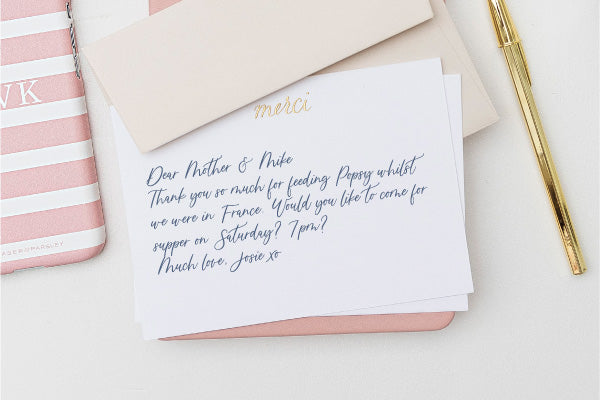 VK
merci
Dear Mother & Mike
Thank you so much for feeding Popsy whilst
we were in France. Would you like to come for
supper on Saturday? 7pm?
Much love, Josie xo